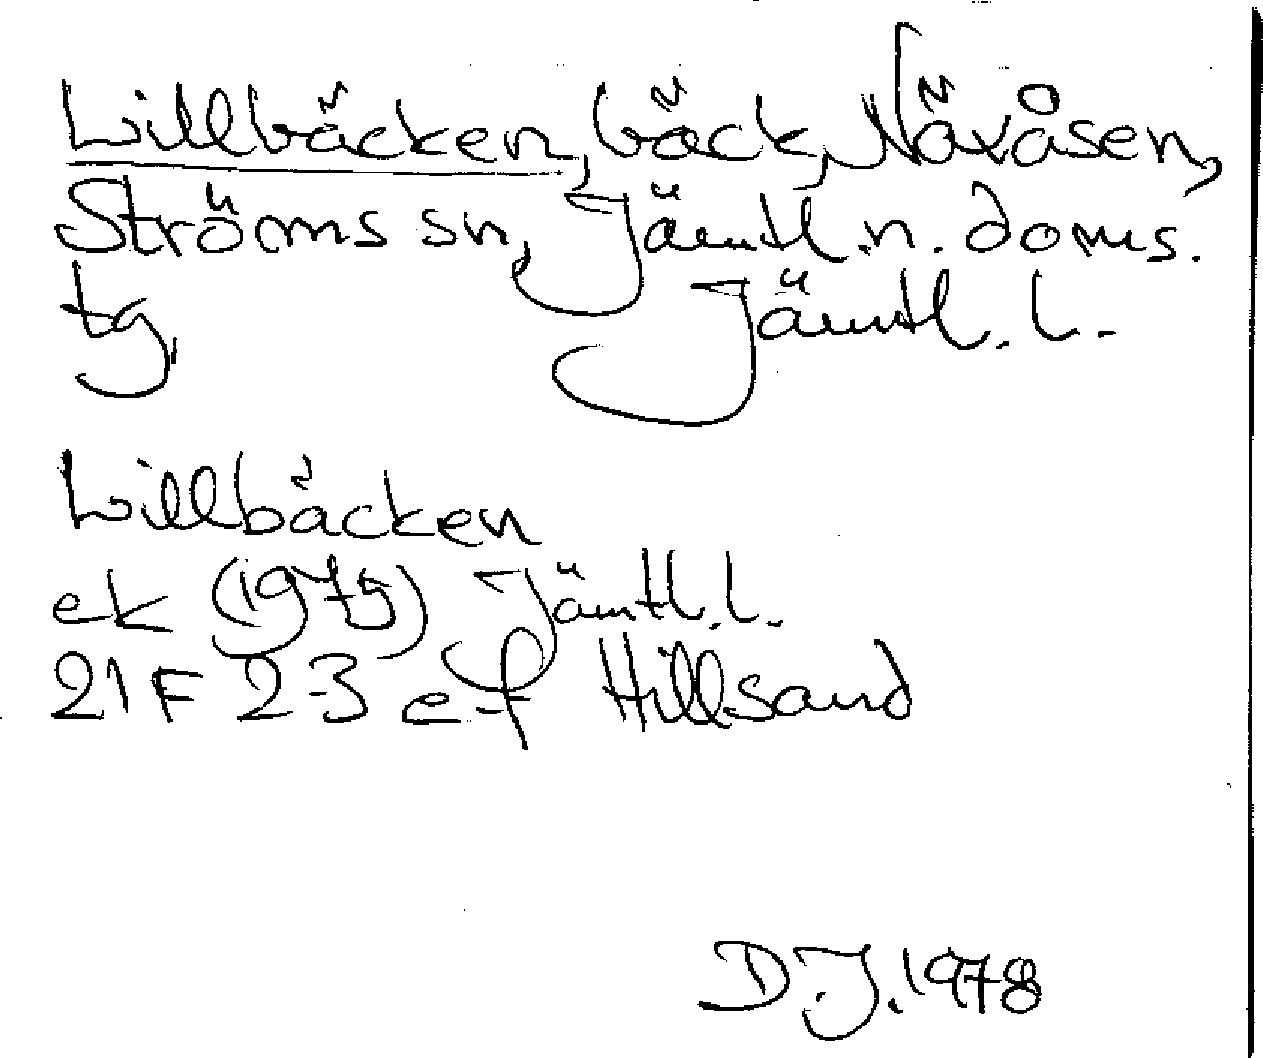 Lillbäcken, bäck, Näxåsen,
Ströms sn, Jämtl. n. doms.
tg, Jämtl. l.
Lillbäcken
ek (1975) Jämtl. l.
21 F 2-3 e-f Hillsand
D.J. 1978